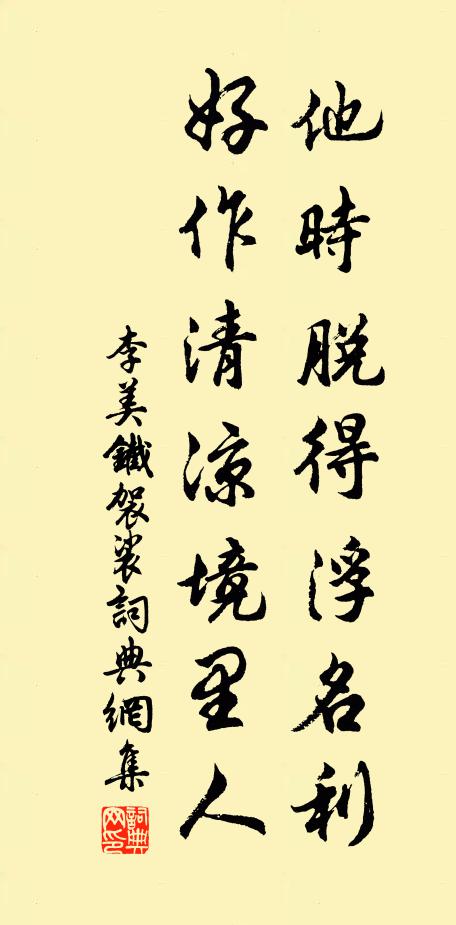 他時脫得浮名利
好作清涼境里人
李美鐵袈裟詞典網集
詞典網印